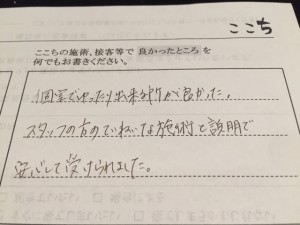 ここち
ここちの施術、接客等で良かったところを
何でもお書きください。
個室でゆったり出来る所が良かった。
スタッフの方のていねいな施術と説明で
安心して受けられました。